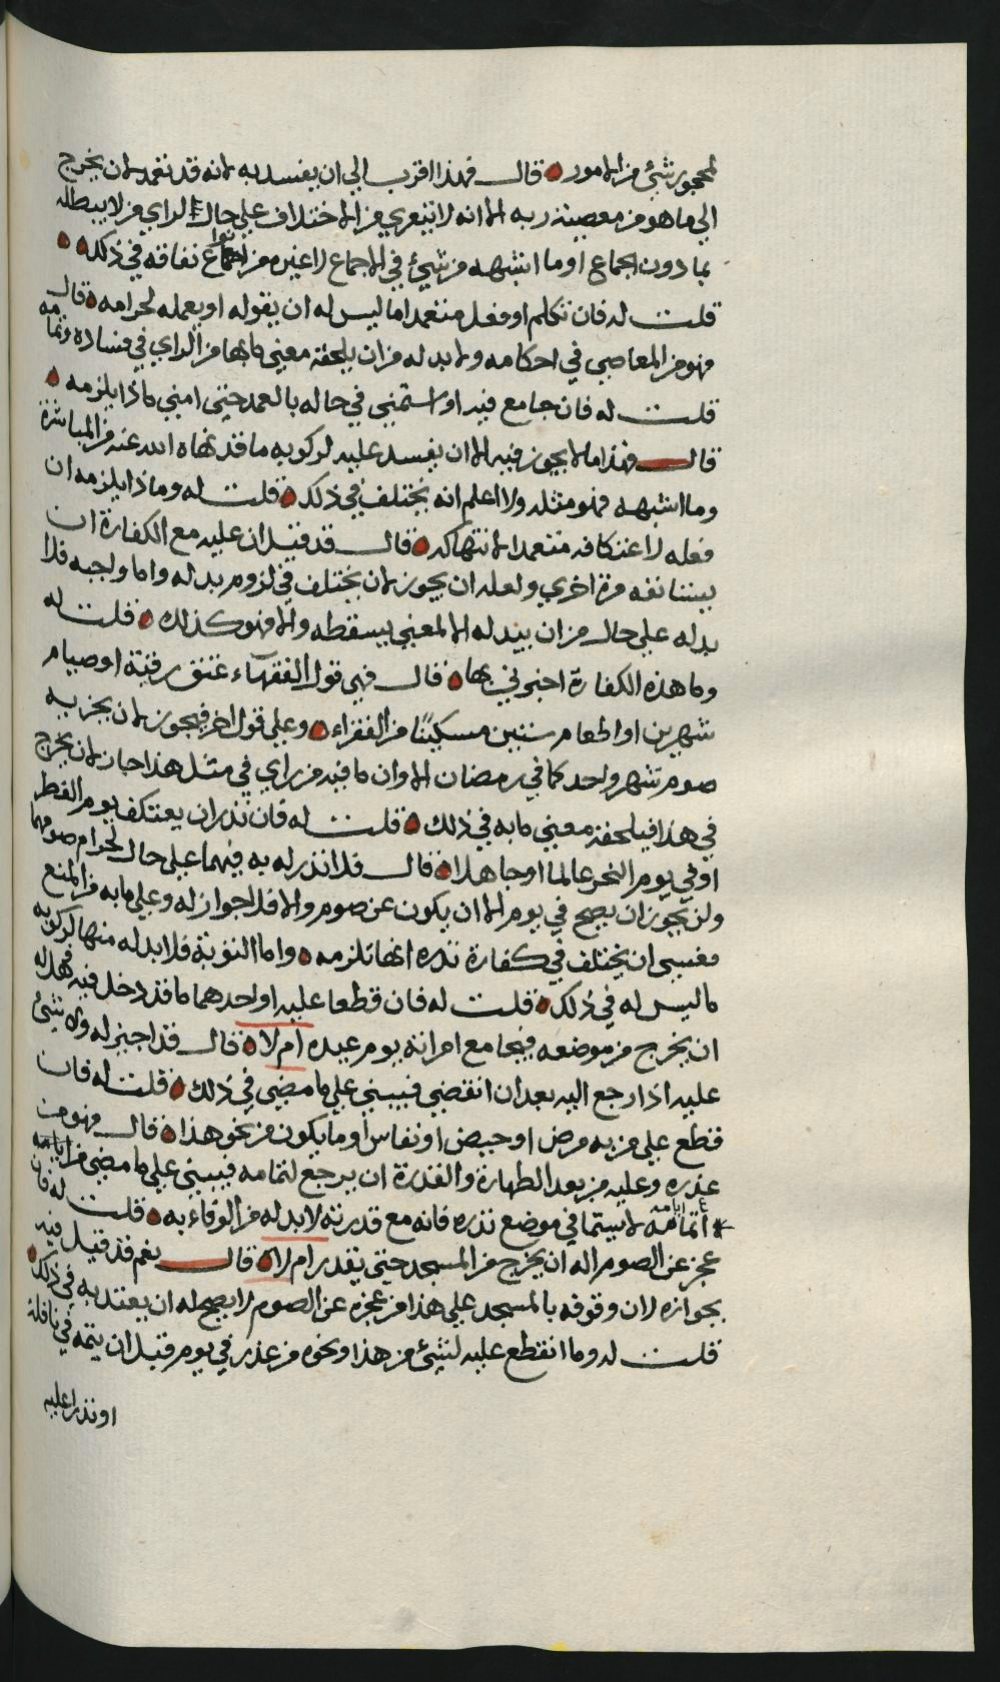 لمحجور شيء من الامور قال فهذا اقرب الى ان يفسد به لانه قد تعمد لان يخرج
الى ما هو من معصية ربه الا انه لا يتعرى من الاختلاف على حال الراي من لا يبطله
بما دون الجماع او ما اشبهه من شيء في الاجماع لا غيره من انواع نفاقه في ذلك
قلت له فان تكلم او فعل متعمدا ما ليس له ان يقوله او يعمله لحرامه قال
فهو من المعاصي في احكامه ولا بد له من ان يلحقه معنى ما بها من الراي في فساده وتمامه
قلت له فان جامع فيه او استمنى في حاله بالعمد حتى امنى ماذا يلزمه
قال فهذا ما لا يجوز فيه الا ان يفسد عليه لركوبه ما قد نهاه الله عنه من المباشرة
وما اشبهه فهو مثله ولا اعلم انه يختلف في ذلك قلت له وماذا يلزمه ان
فعله لاعتكافه متعمدا لانتهاكه قال قد قيل ان عليه مع الكفارة ان
يستانفه مرة اخرى ولعله ان يجوز لان يختلف في لزوم بدله واما واجبه فلا
بد له على حال من ان يبدله الا لمعنى يسقطه والا فهو كذلك قلت له
وما هذه الكفارة اخبرني بها قال فهي قول الفقهاء عتق رقبة او صيام
شهرين او اطعام ستين مسكينًا من الفقراء وعلى قول اخر فيجوز لان يجزيه
صوم شهر واحد كما في رمضان الا وان ما فيه من راي في مثل هذا جاز لان يخرج
في هذا فيلحقه معنى ما به في ذلك قلت له فان نذر ان يعتكف يوم الفطر
او في يوم النحر عالما او جاهلا قال فلا نذر له به فيهما على حال لحرام صومهما
ولن يجوز ان يصح في يوم الا ان يكون عن صوم والا فلا جواز له وعلى ما به من المنع
فعسى ان يختلف في كفارة نذره انها تلزمه واما التوبة فلا بد له منها لركوبه
ما ليس له في ذلك قلت له فان قطعا عليه او احدهما ما قد دخل فيه فهل له
ان يخرج من موضعه فيجامع امراته يوم عيده ام لا قال قد اجيز له ولا شيء
عليه اذا رجع اليه بعد ان انقضى فيبني على ما مضى في ذلك قلت له فان
قطع على من به مرض او حيض او نفاس او ما يكون من نحو هذا قال فهو من
عذره وعليه من بعد الطهارة والقدرة ان يرجع لتمامه فيبني على ما مضى من ايامه
اتمامه لا سيما في موضع نذره فانه مع قدرته لا بد له من الوفاء به قلت له فان
عجز عن الصوم اله ان يخرج من المسجد حتى يقدر ام لا قال نعم قد قيل فيه
بجوازه لان وقوفه بالمسجد على هذا من عجزه عن الصوم لا يصح له ان يعتد به في ذلك
قلت له وما انقطع عليه لشيء من هذا ونحوه من عذر في يوم قبل ان يتمه في نافلة
او نذرا عليه